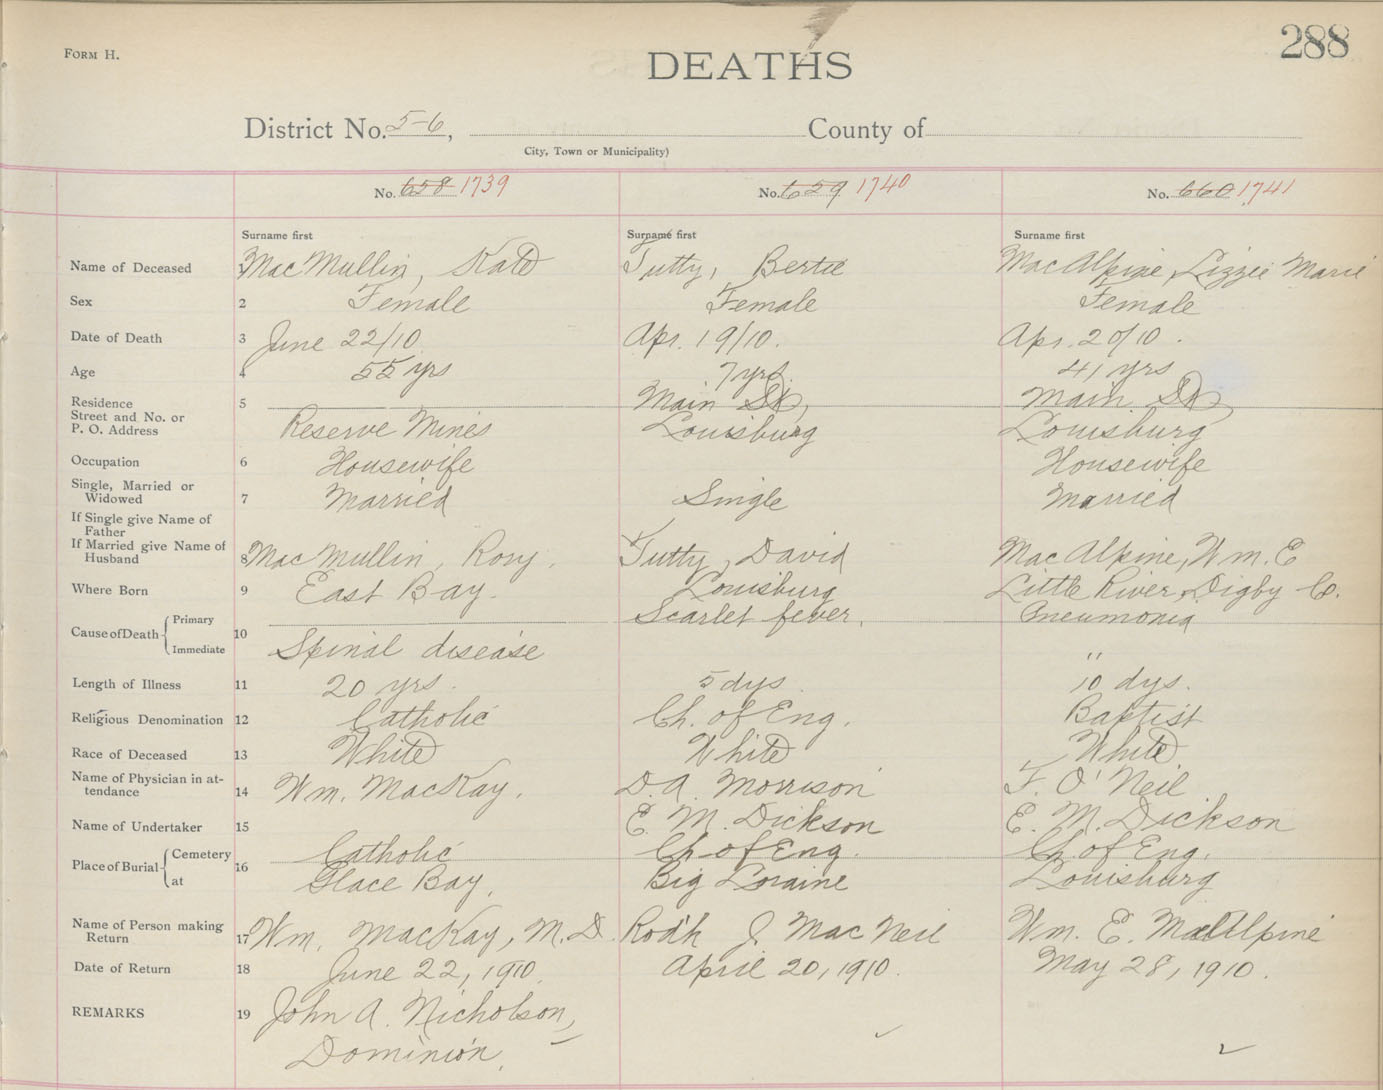 288
FORM H.
DEATHS
District No. 5-6, County of
City, Town or Municipality)
No. 658 1739 No. 659 1740 No. 660 1741
Surname first Surname first Surname first
Name of Deceased 1 MacMullin, Kate Tutty, Bertie MacAlpine, Lizzie Marie
Sex 2 Female Female Female
Date of Death 3 June 22/10 Apr. 19/10. Apr. 20/10.
Age 4 55 yrs 7 yrs 41 yrs
Residence 5 Main St, Main St,
Street and No. or
P. O. Address Reserve Mines Louisburg Louisburg
Occupation 6 Housewife Housewife
Single, Married or
Widowed 7 Married Single Married
If Single give Name of
Father
If Married give Name of
Husband 8 MacMullin, Rory. Tutty, David MacAlpine, Wm. E
Where Born 9 East Bay. Louisburg Little River, Digby Co.
Cause of Death Primary 10 Scarlet fever. Pneumonia
Immediate Spinal disease "
Length of Illness 11 20 yrs. 5 dys 10 dys.
Religious Denomination 12 Catholic Ch. of Eng. Baptist
Race of Deceased 13 White White White
Name of Physician in at-
tendance 14 Wm. MacKay. D. A. Morrison F. O'Neil
Name of Undertaker 15 E. M. Dickson E. M. Dickson
Place of Burial Cemetery 16 Catholic Ch of Eng. Ch. of Eng.
at Glace Bay. Big Loraine Louisburg
Name of Person making
Return 17 Wm. MacKay, M.D. Rod'k J. MacNeil Wm. E. MacAlpine
Date of Return 18 June 22, 1910. April 20, 1910. May 28, 1910.
REMARKS 19 John A. Nicholson,
Dominion.